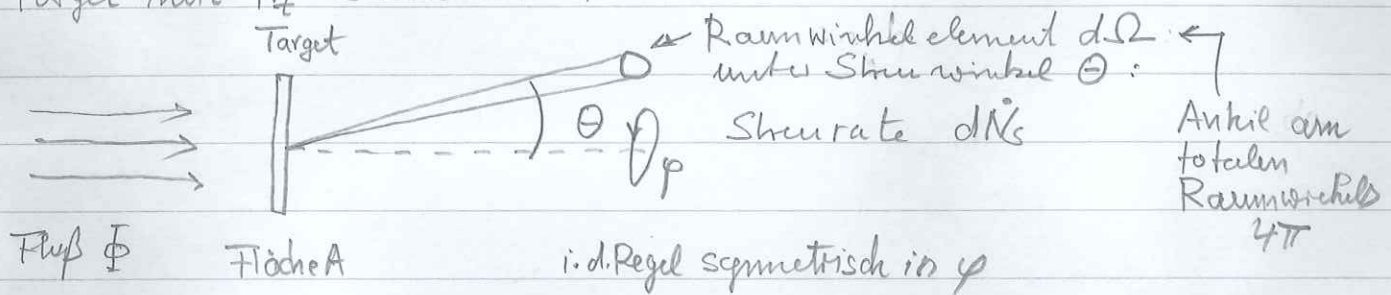 Target
Raumwinkelelement dΩ
unter Streuwinkel Θ :
Θ
φ
Streurate dṄs
Anteil am
totalen
Raumwinkels
4π
Fluß Φ
Fläche A
i.d. Regel symmetrisch in φ